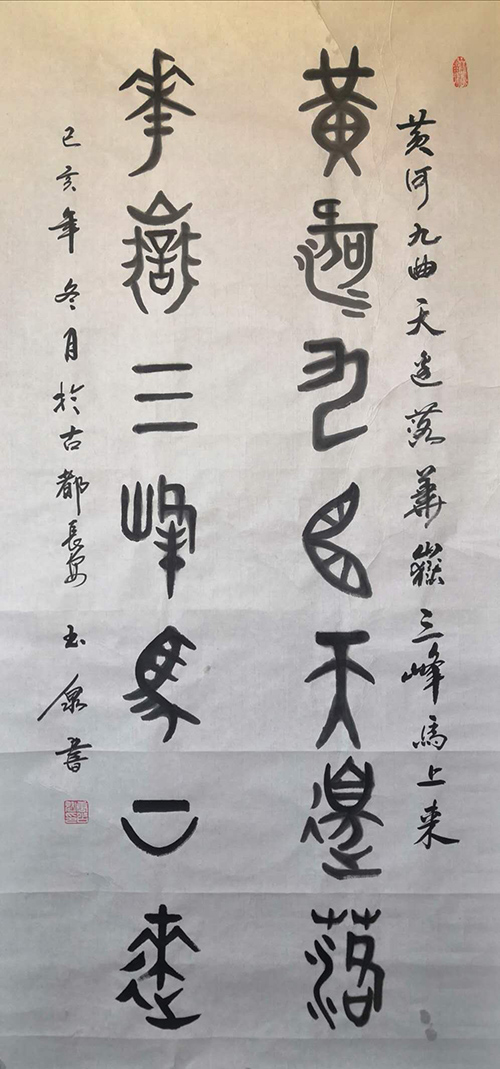 黄河九曲天边落华嶽三峰馬上来
黄河九曲天邊落
華嶽三峰馬上來
己亥年冬月於古都長安 玉泉書